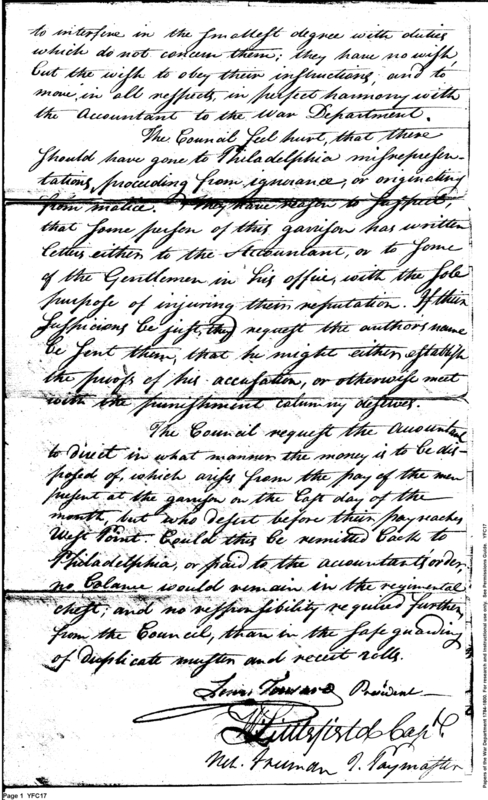 to interfere in the smallest degree with duties
which do not concern them; they have no wish,
but the wish to obey their instructions, and to
move, in all respects, in perfect harmony with
the Accountant to the War Department.
The Council feel hurt, that there
should have gone to Philadelphia misrepresen-
tations, proceeding from ignorance, or originating
from malice. They have reason to suspect
that some person of this garrison has written
letters either to the Accountant, or to some
of the Gentlemen in his office, with the sole
purpose of injuring their reputation. If their
suspicions be just, they request the authors name
be sent them, that he might either establish
the proofs of his accusation, or otherwise meet
with the punishment calumny deserves.
The Council request the Accountant
to direct in what manner the money is to be dis-
posed of, which arises from the pay of the men
present at the garrison on the last day of the
month, but who desert before their pay reaches
West Point. Could this be remitted back to
Philadelphia, or paid to the accountants order,
no balance would remain in the regimental
chest; and no responsibility required further
from the Council, than in the safe guarding
of duplicate muster and receit rolls.
Lewis Tousard President
Littlefield Capt.
Net. Freeman Paymaster
Page 1 YFC17
Papers of the War Department 1784-1800. For research and instructional use only. See Permissions Guide. YFC17